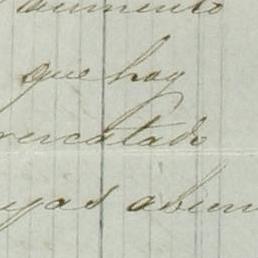 aumento
que hay
rescatado
uyas abun